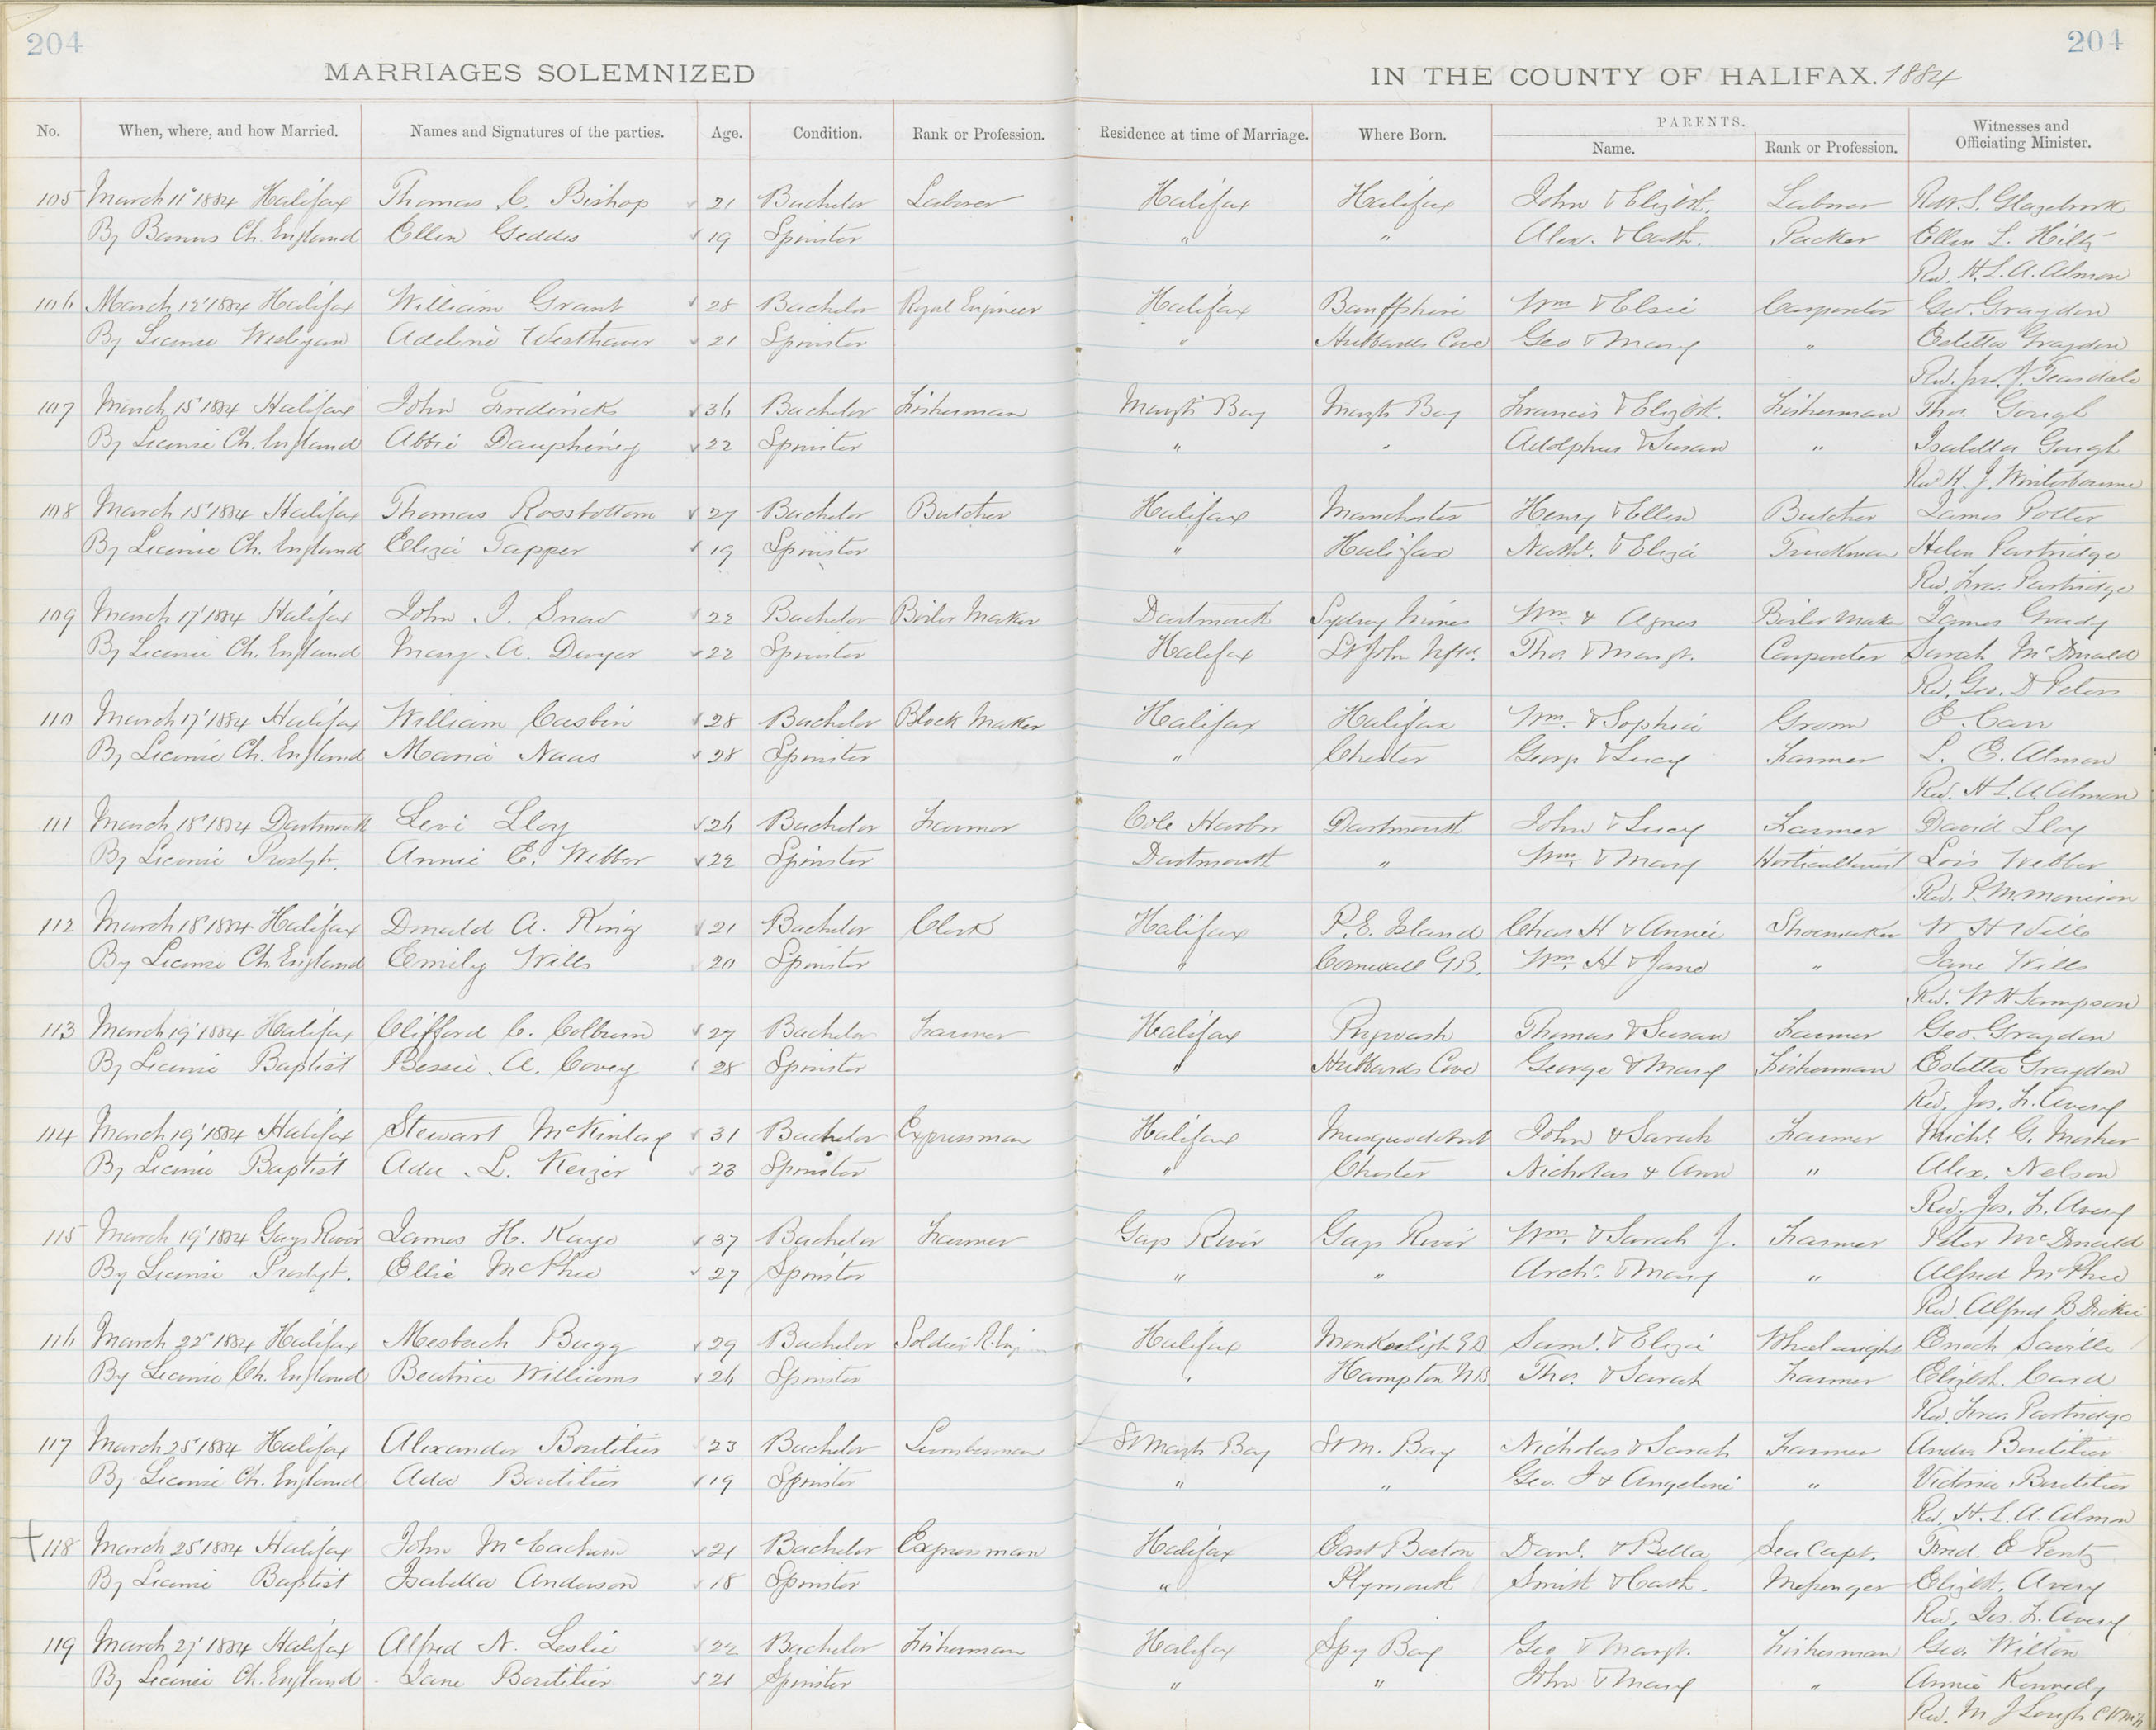 204 204
MARRIAGES SOLEMNIZED IN THE COUNTY OF HALIFAX. 1884
No. When, where, and how Married. Names and Signatures of the parties. Age. Condition. Rank or Profession. Residence at time of Marriage. Where Born. PARENTS. Name. Rank or Profession. Witnesses and Officiating Minister.
105 March 11" 1884 Halifax Thomas C. Bishop 21 Bachelor Laborer Halifax Halifax John & Elizbth. Laborer Robt. S. Glazebrook
By Banns Ch. England Ellen Geddes 19 Spinster " " Alex. & Cath. Packer Ellen L. Hiltz
Rev. H. L. A. Almon
106 March 12' 1884 Halifax William Grant 28 Bachelor Royal Engineer Halifax Banffshire Wm & Elsie Carpenter Geo. Graydon
By License Wesleyan Adeline Westhaver 21 Spinster " Hubbards Cove Geo & Mary " Estella Graydon
Rev. Jno. J. Teasdale
107 March 15' 1884 Halifax John Fredericks 36 Bachelor Fisherman Margts Bay Margts Bay Francis & Elizbth. Fisherman Thos. Gough
By License Ch. England Abbie Dauphiney 22 Spinster " " Adolphus & Susan " Isabella Gough
Rev H. J. Winterbourne
108 March 15' 1884 Halifax Thomas Rossbottom 27 Bachelor Butcher Halifax Manchester Henry & Ellen Butcher James Potter
By License Ch. England Eliza Tapper 19 Spinster " Halifax Nathl. & Eliza Truckman Helen Partridge
Rev. Fras. Partridge
109 March 17' 1884 Halifax John J. Snow 22 Bachelor Boiler Maker Dartmouth Sydney Mines Wm. & Agnes Boiler Maker James Grady
By License Ch. England Mary A. Dwyer 22 Spinster Halifax St John Nfld. Thos. & Margt. Carpenter Sarah McDonald
Rev. Geo. D Peters
110 March 17' 1884 Halifax William Casbin 28 Bachelor Block Maker Halifax Halifax Wm. & Sophia Groom E. Carr
By License Ch. England Maria Naas 28 Spinster " Chester George & Lucy Farmer L. E. Almon
Rev. H. L. A. Almon
111 March 18' 1884 Dartmouth Levi Lloy 26 Bachelor Farmer Cole Harbor Dartmouth John & Lucy Farmer David Lloy
By License Presbytn. Annie E. Webber 22 Spinster Dartmouth " Wm. & Mary Horticulturist Lois Webber
Rev. P. M. Morrison
112 March 18' 1884 Halifax Donald A. King 21 Bachelor Clerk Halifax P. E. Island Chas. H & Annie Shoemaker W H Wills
By License Ch. England Emily Wills 20 Spinster " Cornwall G B. Wm. H & Jane " Jane Wills
Rev. W H Sampson
113 March 19' 1884 Halifax Clifford C. Colburn 27 Bachelor Farmer Halifax Pugwash Thomas & Susan Farmer Geo. Graydon
By License Baptist Bessie A. Covey 28 Spinster " Hubbards Cove George & Mary Fisherman Estella Graydon
Rev. Jos. F. Avery
114 March 19' 1884 Halifax Stewart McKinlay 31 Bachelor Expressman Halifax Musquodoboit John & Sarah Farmer Michl. G. Mosher
By License Baptist Ada L. Keizer 23 Spinster " Chester Nicholas & Ann " Alex. Nelson
Rev. Jos. F. Avery
115 March 19' 1884 Gays River James H. Kaye 37 Bachelor Farmer Gays River Gays River Wm. & Sarah J. Farmer Peter McDonald
By License Presbyt. Ellie McPhee 27 Spinster " " Archd. & Mary " Alfred McPhee
Rev. Alfred B Dickie
116 March 22" 1884 Halifax Mesbach Bugg 29 Bachelor Soldier R. Halifax Monkseligh G B Saml. & Eliza Wheelwright Enoch Saville
By License Ch. England Beatrice Williams 26 Spinster " Hampton N B Thos. & Sarah Farmer Elizbth. Card
Rev. Fras. Partridge
117 March 25' 1884 Halifax Alexander Boutilier 23 Bachelor Lumberman St Margts Bay St M. Bay Nicholas & Sarah Farmer Andw. Boutilier
By License Ch. England Ada Boutilier 19 Spinster " " Geo. J & Angeline " Victoria Boutilier
Rev. H. L. A. Almon
118 March 25' 1884 Halifax John McEachern 21 Bachelor Expressman Halifax East Boston Danl. & Bella Sea Capt. Fred. E Pentz
By License Baptist Isabella Anderson 18 Spinster " Plymouth Smith & Cath. Messenger Elizbth. Avery
Rev. Jos. F. Avery
119 March 27' 1884 Halifax Alfred N. Leslie 22 Bachelor Fisherman Halifax Spy Bay Geo & Margt. Fisherman Geo. Wilton
By License Ch. England Jane Boutilier 21 Spinster " " John & Mary " Annie Kennedy
Rev. M J Lough